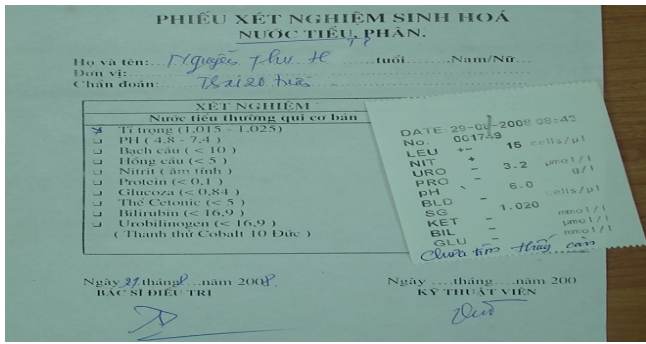 PHIẾU XÉT NGHIỆM SINH HOÁ
NƯỚC TIỂU, PHÂN.
Họ và tên: Nguyễn Thu H tuổi Nam/Nữ
Đơn vị:
Chẩn đoán: Thai 20 tuần
XÉT NGHIỆM
Nước tiểu thường qui cơ bản
Tỉ trọng (1,015 - 1.025)
PH ( 4,8 - 7,4 )
Bạch cầu ( < 10 )
Hồng cầu ( < 5 )
Nitrit ( âm tính )
Protein (< 0,1 )
Glucoza (< 0,84 )
Thể Cetonic ( < 5 )
Bilirubin ( < 16,9 )
Urobilinogen ( < 16,9 )
( Thanh thử Cobalt 10 Đức )
DATE: 29-08-2008 08:43
No. 001749
LEU +- 15 cells/µl
NIT +
URO - 3.2 µmol/l
PRO - g/l
pH 6.0
BLD - cells/µl
SG 1.020
KET - mmol/l
BIL - µmol/l
GLU - mmol/l
Chưa tìm thấy cặn
Ngày 29 tháng 8 năm 2008. Ngày tháng năm 200
BÁC SĨ ĐIỀU TRỊ KỸ THUẬT VIÊN